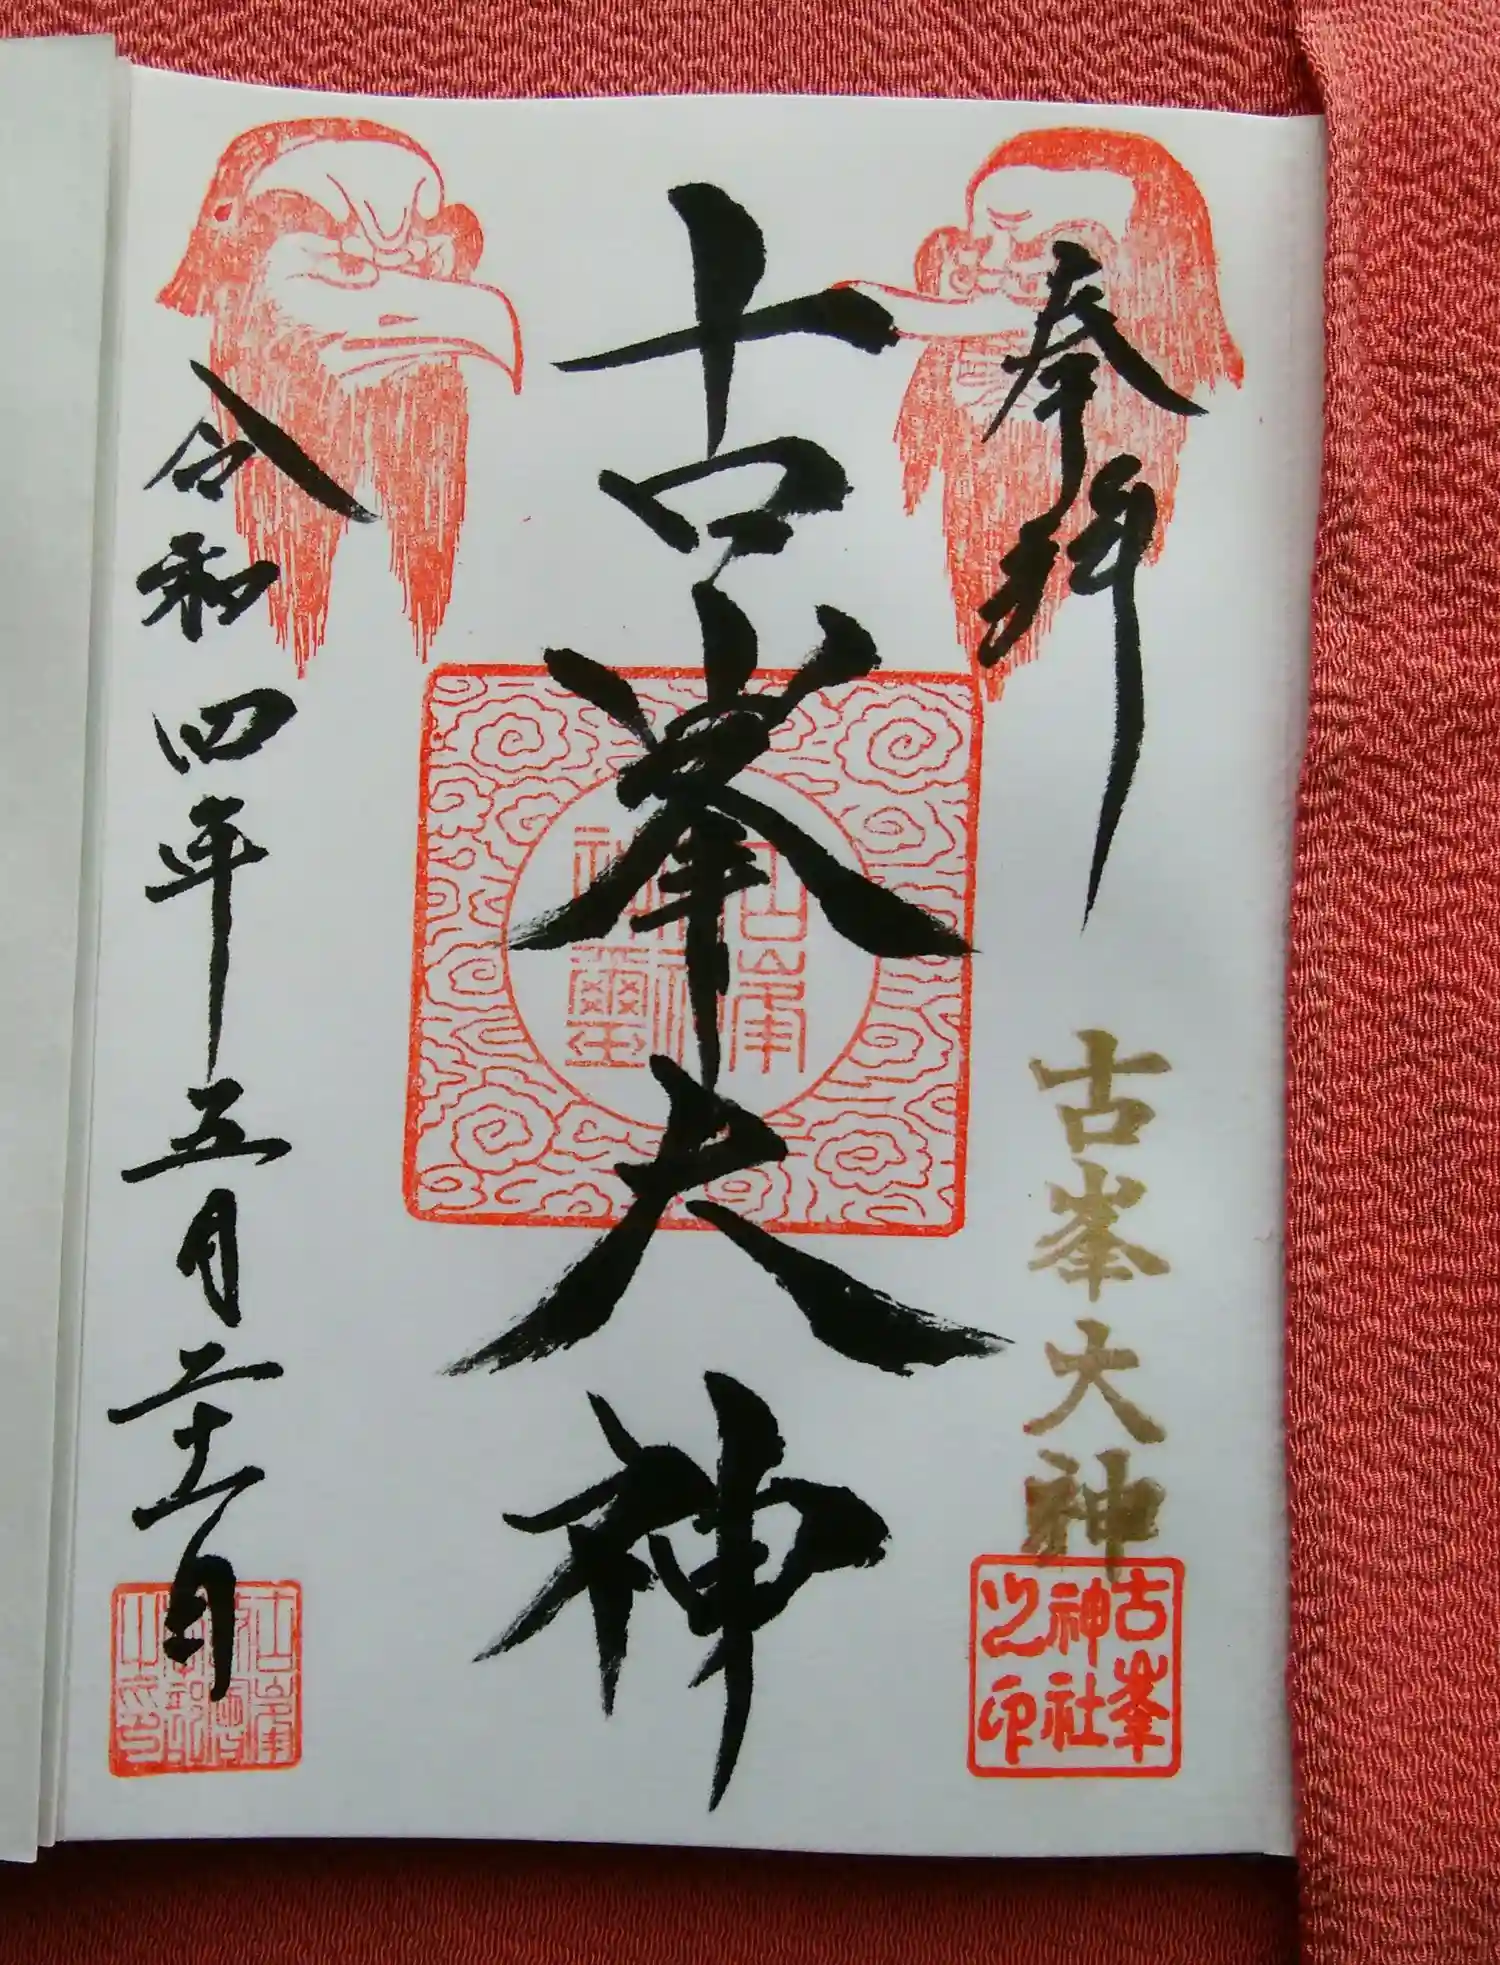 奉拝
古峯大神
古峯
神社
之印
古峯大神
令和四年五月二十二日